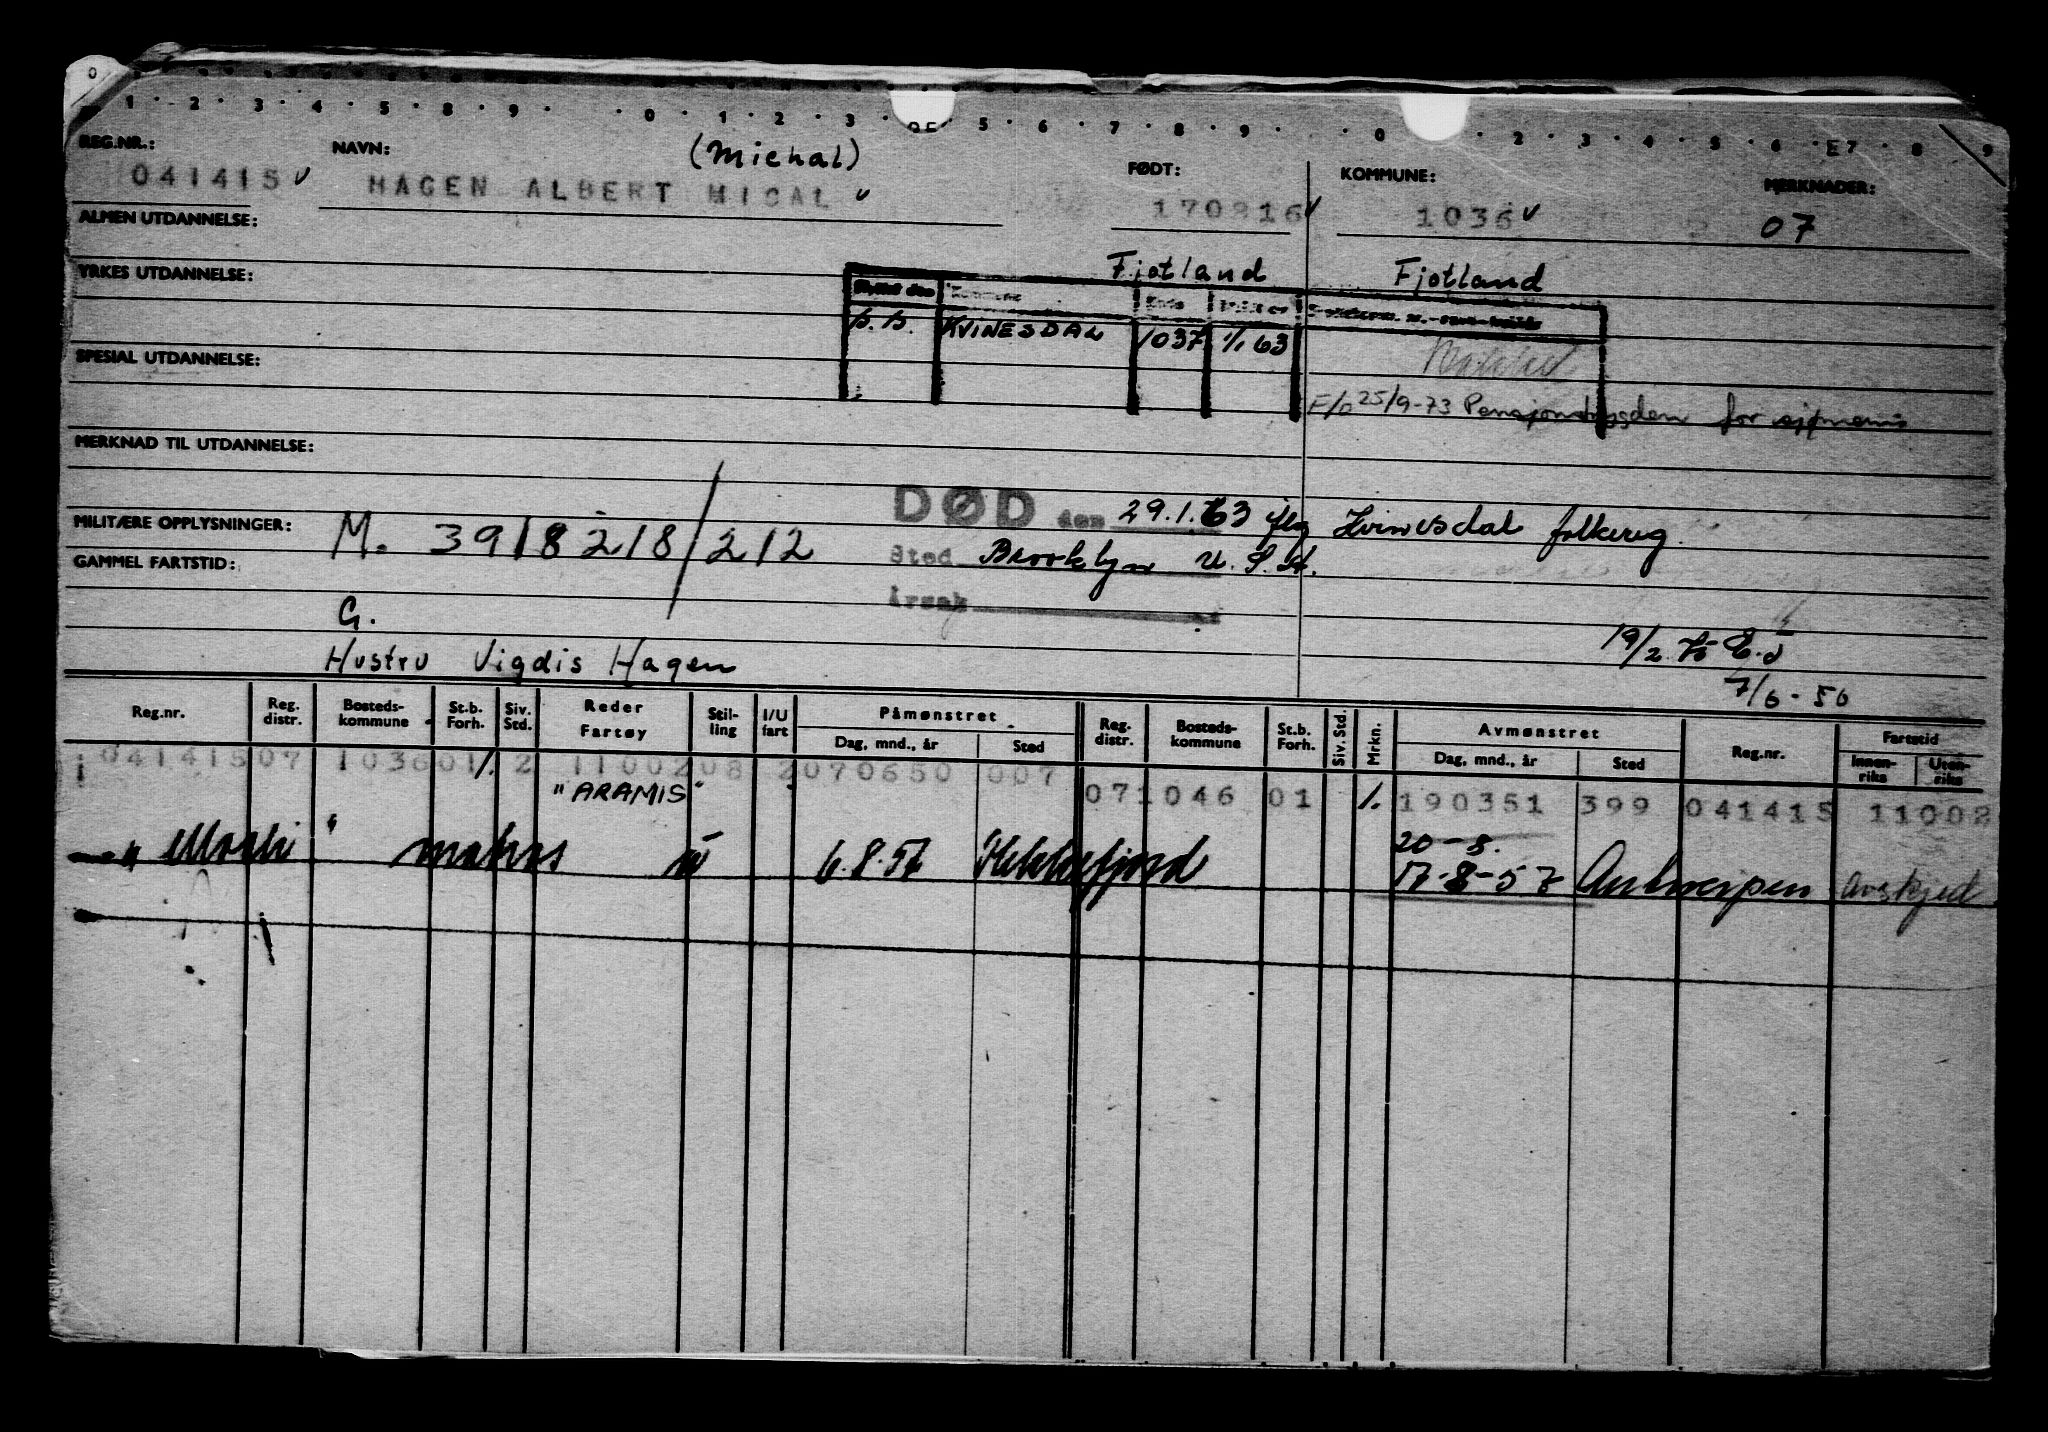 0 1 2 3 4 5 8 9 0 1 2 3 5 6 7 8 9 0 2 3 4 5 6 E7 8 9
REG.NR.: NAVN: (Michal) FØDT: KOMMUNE: MERKNADER:
041415 HAGEN ALBERT MICAL 170816 1036 07
ALMEN UTDANNELSE:
YRKES UTDANNELSE: Fjotland Fjotland
Kommune
s.s. KVINESDAL 1037 1/1 63
SPESIAL UTDANNELSE:
F/b 25/9-73 Pensjonstrygden for sjømenn
MERKNAD TIL UTDANNELSE:
DØD den 29.1.63 iflg Kvinesdal folkereg.
MILITÆRE OPPLYSNINGER: M. 3918218/212
Sted Brooklyn U.S.A.
GAMMEL FARTSTID:
Årsak
G.
19/2
Hustru Vigdis Hagen
7/6-50
Reg.nr. Reg. distr. Bosteds-kommune St.b. Forh. Siv. Std. Reder Fartøy Stil-ling I/U fart Påmønstret Dag, mnd., år Sted Reg. distr. Bosteds-kommune St.b. Forh. Siv. Std. Mrkn. Avmønstret Dag, mnd., år Sted Reg.nr. Fartstid Innen-riks Uten-riks
041415 07 1036 01 /. 2 11002 08 2 070650 007
"ARAMIS" 07 1046 01 /. 190351 399 041415 11002
20-5.
"Moshi" matros u 6.8.57 Flekkefjord 17-8-57 Antwerpen Avskjed